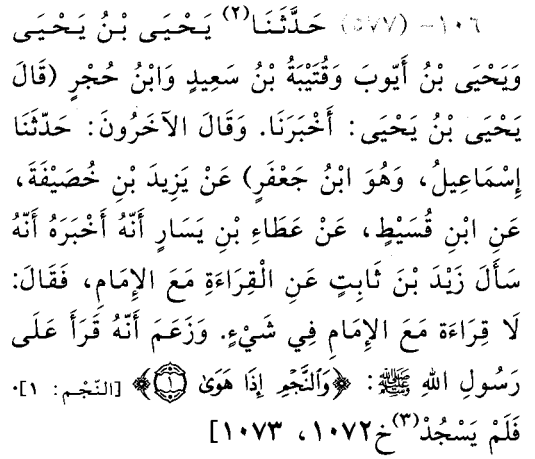 ١٠٦- (٥٧٧) حَدَّثَنَا(٢) يَحْيَى بْنُ يَحْيَى
وَيَحْيَى بْنُ أَيّوبَ وَقُتَيْبَةُ بْنُ سَعِيدٍ وَابْنُ حُجْرٍ (قَالَ
يَحْيَى بْنُ يَحْيَى: أَخْبَرَنَا. وَقَالَ الآخَرُونَ: حَدّثَنَا
إِسْمَاعِيلُ، وَهُوَ ابْنُ جَعْفَرٍ) عَنْ يَزِيدَ بْنِ خُصَيْفَةَ،
عَنِ ابْنِ قُسَيْطٍ، عَنْ عَطَاءِ بْنِ يَسَارٍ أَنَّهُ أَخْبَرَهُ أَنَّهُ
سَأَلَ زَيْدَ بْنَ ثَابِتٍ عَنِ الْقِرَاءَةِ مَعَ الإِمَامِ، فَقَالَ:
لَا قِرَاءَة مَعَ الإِمَامِ فِي شَيْءٍ. وَزَعَمَ أَنَّهُ قَرَأَ عَلَى
رَسُولِ اللهِ ﷺ: ﴿وَالنَّجْمِ إِذَا هَوَىٰ ۝١﴾ [النّجْم: ١].
فَلَمْ يَسْجُدْ(٣) خ١٠٧٢، ١٠٧٣]